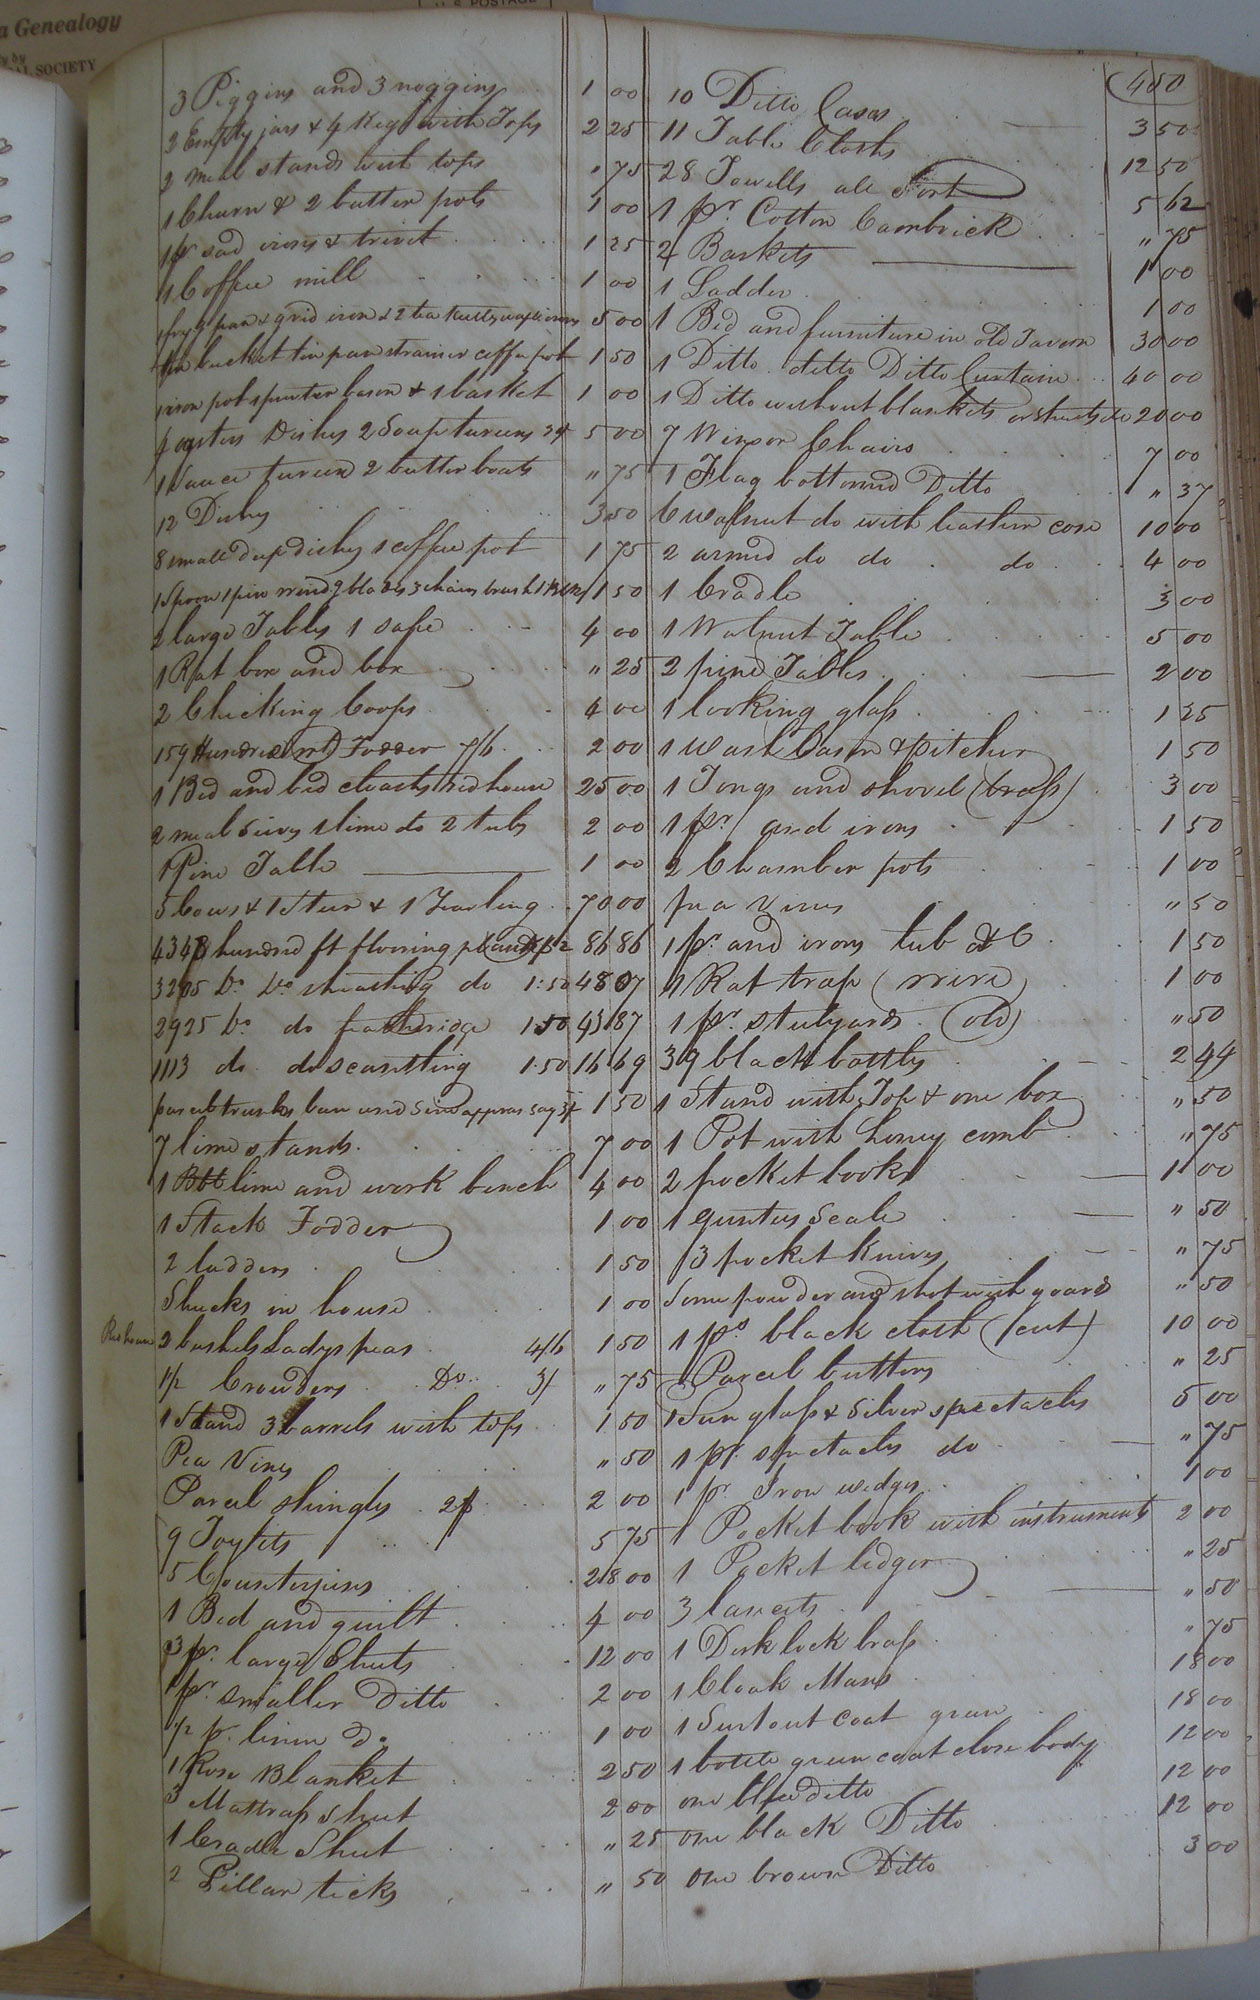 a Genealogy
by
AL SOCIETY
U.S POSTAGE
400
3 Piggins and 3 noggins 1 00
3 Empty jars & 4 Kegs with Tops 2 25
2 meal stands with tops " 75
1 Churn & 2 butter pots 1 00
1 pr sad irons & trivet 1 25
1 Coffee mill 1 00
1 fryg pan & grid iron & 2 tea kettles waffle irons 5 00
bucket tin pan strainer coffe pot 1 50
1 iron pot 1 pewter bason & 1 basket 1 00
4 oysters Dishes 2 Soup tureens 5 00
1 Sauce tureen 2 butter boats " 75
12 Dishes 3 50
8 small deep dishes 1 coffee pot 1 75
1 Spoon 1 pin wind 2 blades 3 chains brush 1 50
2 large Tables 1 safe 4 00
1 Rat box and box " 25
2 Chicking Coops 4 00
159 Hundred Fodder 7/6 2 00
1 Bed and bed cloaths red house 25 00
2 meal Sives 1 lime do 2 tubs 2 00
1 Pine Table 1 00
5 Cows & 1 Steer & 1 Yearling 70 00
4343 hundred ft flooring plank 86 86
3205 Do Do sheathing do 1.50 48 07
2925 Do do featheridge 1.50 43 87
1113 do do scantling 1.50 16 69
parcel trunks 1 50
7 lime stands 7 00
1 lime and work bench 4 00
1 Stack Fodder 1 00
2 ladders 1 50
Shucks in house 1 00
2 bushels Ladys peas 4/6 1 50
1½ Crowders Do 3/ " 75
1 Stand 3 barrels with tops 1 50
Pea Vines " 50
Parcel shingles 2 00
9 Toylets 5 75
5 Counterpins 28 00
1 Bed and quilt 4 00
3 pr large Sheets 12 00
1 pr smaller Ditto 2 00
½ pr linen do 1 00
1 Rose Blanket 2 50
3 Mattrass sheet 2 00
1 Cradle Sheet " 25
2 Pillar ticks " 50
10 Ditto Cases 3 50
11 Table Cloths 12 50
28 Towells all Sort 5 62
1 pr Cotton Cambrick " 75
4 Baskets 1 00
1 Ladder 1 00
1 Bed and furniture in old Tavern 30 00
1 Ditto ditto Ditto Curtain 40 00
1 Ditto without blankets or sheets do 20 00
7 Winsor Chairs 7 00
1 Flag bottomed Ditto " 37
6 Walnut do with leather cose 10 00
2 armed do do do 4 00
1 Cradle 3 00
1 Walnut Table 5 00
2 pine Tables 2 00
1 looking glass 1 25
1 Wash bason & pitcher 1 50
1 Tongs and shovel (brass) 3 00
1 pr and irons 1 50
2 Chamber pots 1 00
pea vines " 50
1 pr and irons tub &C 1 50
1 Rat trap (wire) 1 00
1 pr stulyards (old) " 50
39 black bottles 2 44
1 Stand with Top & one box " 50
1 Pot with honey comb " 75
2 pocket books 1 00
1 gunters Scale " 50
3 pocket knives " 75
Some powder and shot with goard " 50
1 ps black cloth (cut) 10 00
Parcel buttons " 25
1 Sun glass & Silver spectacles 5 00
1 pr spectacles do " 75
1 pr Iron wedges 1 00
1 Pocket book with instruments 2 00
1 Pocket ledger " 25
3 lancets " 50
1 Desk lock brass " 75
1 Cloak Mans 18 00
1 Surtout coat green 18 00
1 bottle green coat close body 12 00
one blue ditto 12 00
one black Ditto 12 00
one brown Ditto 3 00